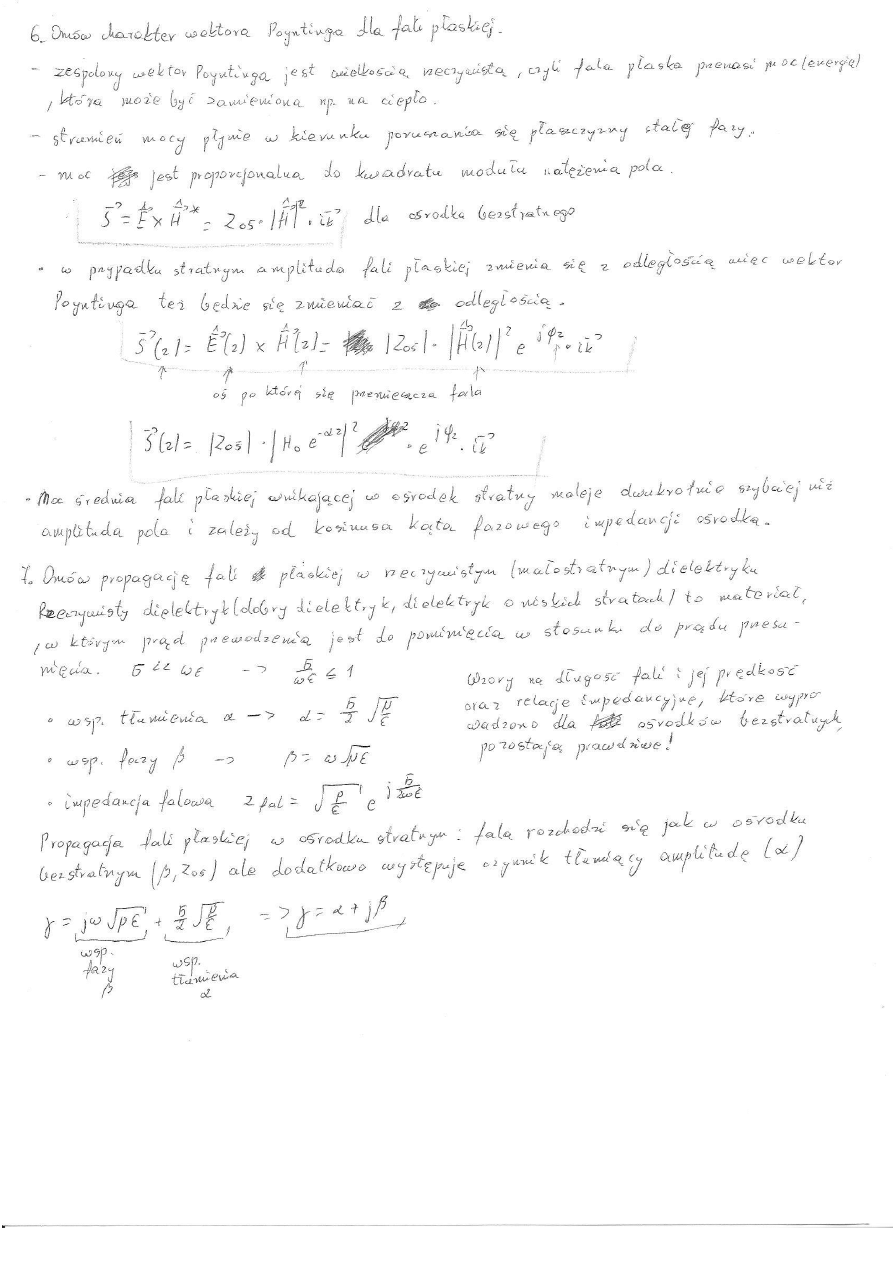 6. Omów charakter wektora Poyntinga dla fali płaskiej.
- zespolony wektor Poyntinga jest wielkością rzeczywistą, czyli fala płaska przenosi moc (energię)
, która może być zamieniona np. na ciepło.
- strumień mocy płynie w kierunku poruszania się płaszczyzny stałej fazy.
- moc jest proporcjonalna do kwadratu modułu natężenia pola.
S⃗ = Ê⃗ × Ĥ⃗* = Zoś · |Ĥ⃗|² · i⃗k dla ośrodka bezstratnego
• w przypadku stratnym amplituda fali płaskiej zmienia się z odległością więc wektor
Poyntinga też będzie się zmieniać z odległością.
S⃗(z) = Ê⃗(z) × Ĥ⃗(z) = |Zoś| · |Ĥ⃗(z)|² e^jφz · i⃗k
oś po której się przemieszcza fala
S⃗(z) = |Zoś| · |H₀ e^-αz|² · e^jφz · i⃗k
• Moc średnia fali płaskiej wnikającej w ośrodek stratny maleje dwukrotnie szybciej niż
amplituda pola i zależy od kosinusa kąta fazowego impedancji ośrodka.
7. Omów propagację fali płaskiej w rzeczywistym (małostratnym) dielektryku
Rzeczywisty dielektryk (dobry dielektryk, dielektryk o niskich stratach) to materiał,
, w którym prąd przewodzenia jest do pominięcia w stosunku do prądu przesu-
nięcia. σ << ωε -> σ/ωε ≤ 1
Wzory na długość fali i jej prędkość
oraz relacje impedancyjne, które wypro
wadzono dla ośrodków bezstratnych,
pozostają prawdziwe!
• wsp. tłumienia α -> α = σ/2 √(μ/ε)
• wsp. fazy β -> β = ω√με
• impedancja falowa Z fal = √(μ/ε) e^(j σ/2ωε)
Propagacja fali płaskiej w ośrodku stratnym: fala rozchodzi się jak w ośrodku
bezstratnym (β, Zoś) ale dodatkowo występuje czynnik tłumiący amplitudę (α)
γ = jω√με + σ/2 √(μ/ε) => γ = α + jβ
wsp.
fazy
β
wsp.
tłumienia
α